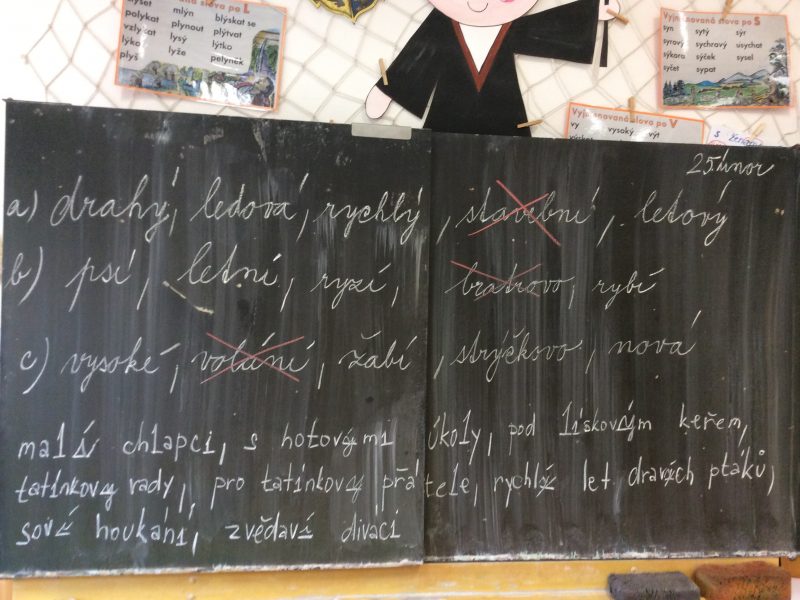 Vyjmenovaná slova po L
mlýn blýskat se
polykat plynout plýtvat
vzlykat lysý lýtko
lýko lyže pelyněk
plyš
Vyjmenovaná slova po S
syn sytý sýr
syrový sychravý usychat
sýkora sýček sysel
syčet sypat
Vyjmenovaná slova po V
vy vysoký
25. únor
a) drahý, ledová, rychlý, stavební, letový
b) psí, letní, ryzí, bratrovo, rybí
c) vysoké, volání, žabí, strýčkovo, nová
malí chlapci, s hotovými úkoly, pod lískovým keřem,
tatínkovy rady, pro tatínkovy přátele, rychlý let dravých ptáků,
soví houkání, zvědaví diváci